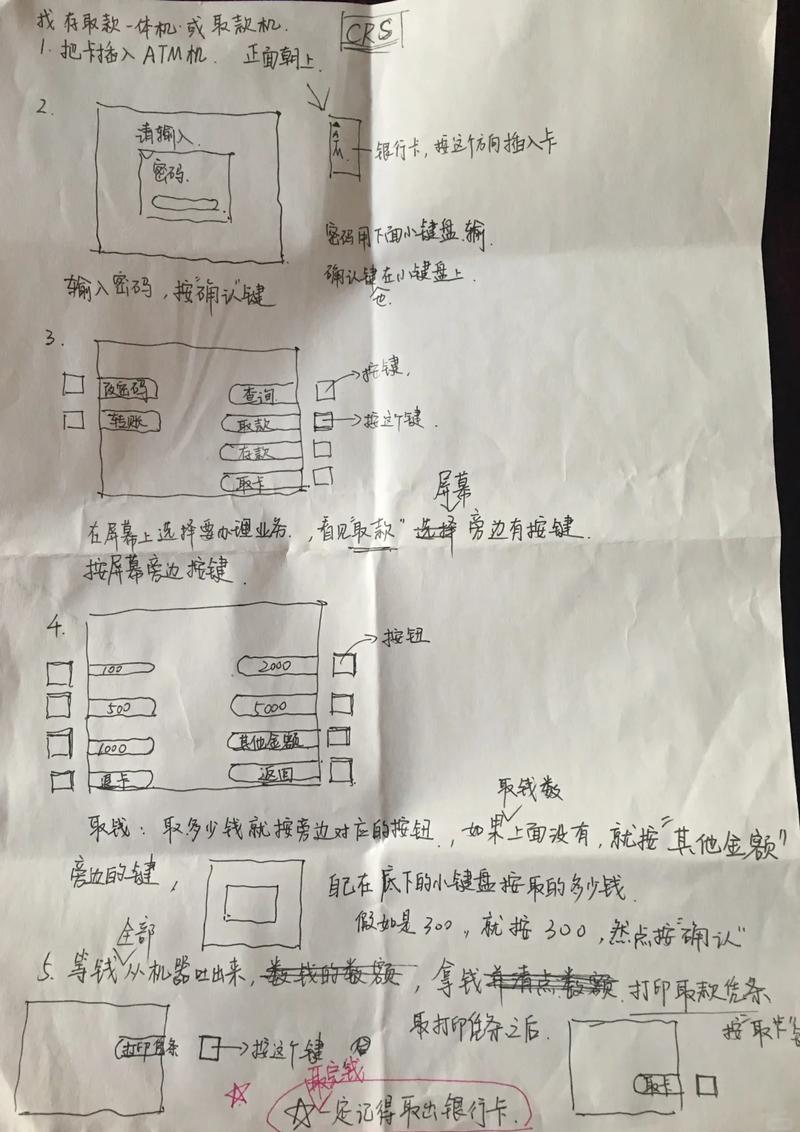 找存取款一体机或取款机.
CRS
1.把卡插入ATM机. 正面朝上.
2.
请输入
密码.
ATM
银行卡,按这个方向插入卡
密码用下面小键盘.输.
确认键在小键盘上.
也
输入密码,按"确认"键
3.
改密码
转账
查询
取款
存款
取卡
按键,
按这个键.
屏幕
在屏幕上选择要办理业务.,看见"取款"选择旁边有按键.
按屏幕旁边按键.
4.
按钮
100
2000
500
5000
1000
其他金额
退卡
返回
取钱数
取钱:取多少钱就按旁边对应的按钮.,如果上面没有,就按"其他金额"
旁边的键,
自己在底下的小键盘按取的多少钱.
假如是300,就按300,然点按"确认"
全部
5.等钱从机器吐出来,数钱的数额,拿钱并清点数额.打印取款凭条
取打印凭条之后.
按"取卡"
打印
按这个键
取卡
取完钱
☆一定记得取出银行卡.